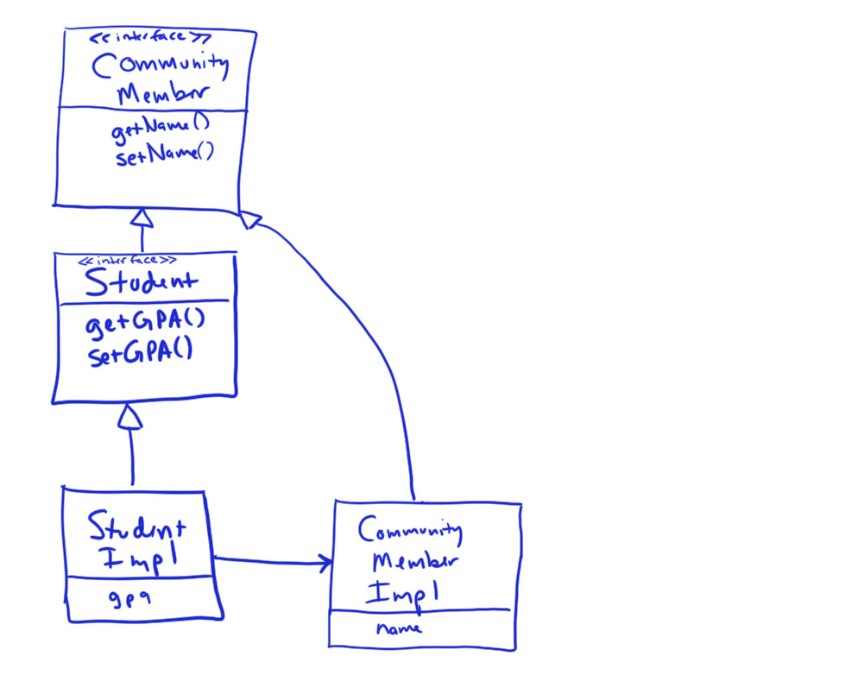 <<interface>>
Community
Member
getName()
setName()
<<interface>>
Student
getGPA()
setGPA()
Student
Impl
gpa
Community
Member
Impl
name